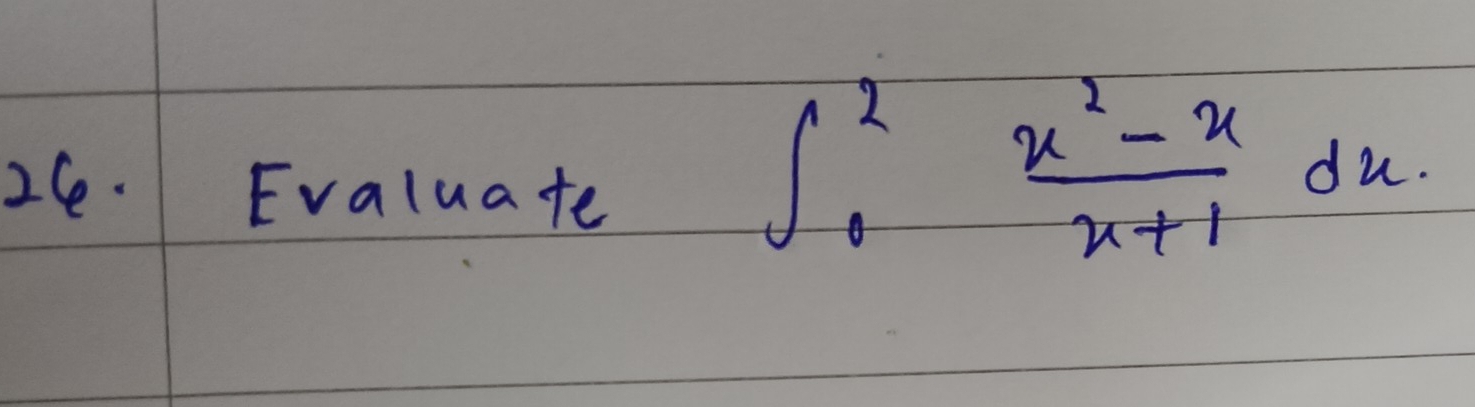 26. Evaluate ∫₀² (x² - x)/(x + 1) dx.